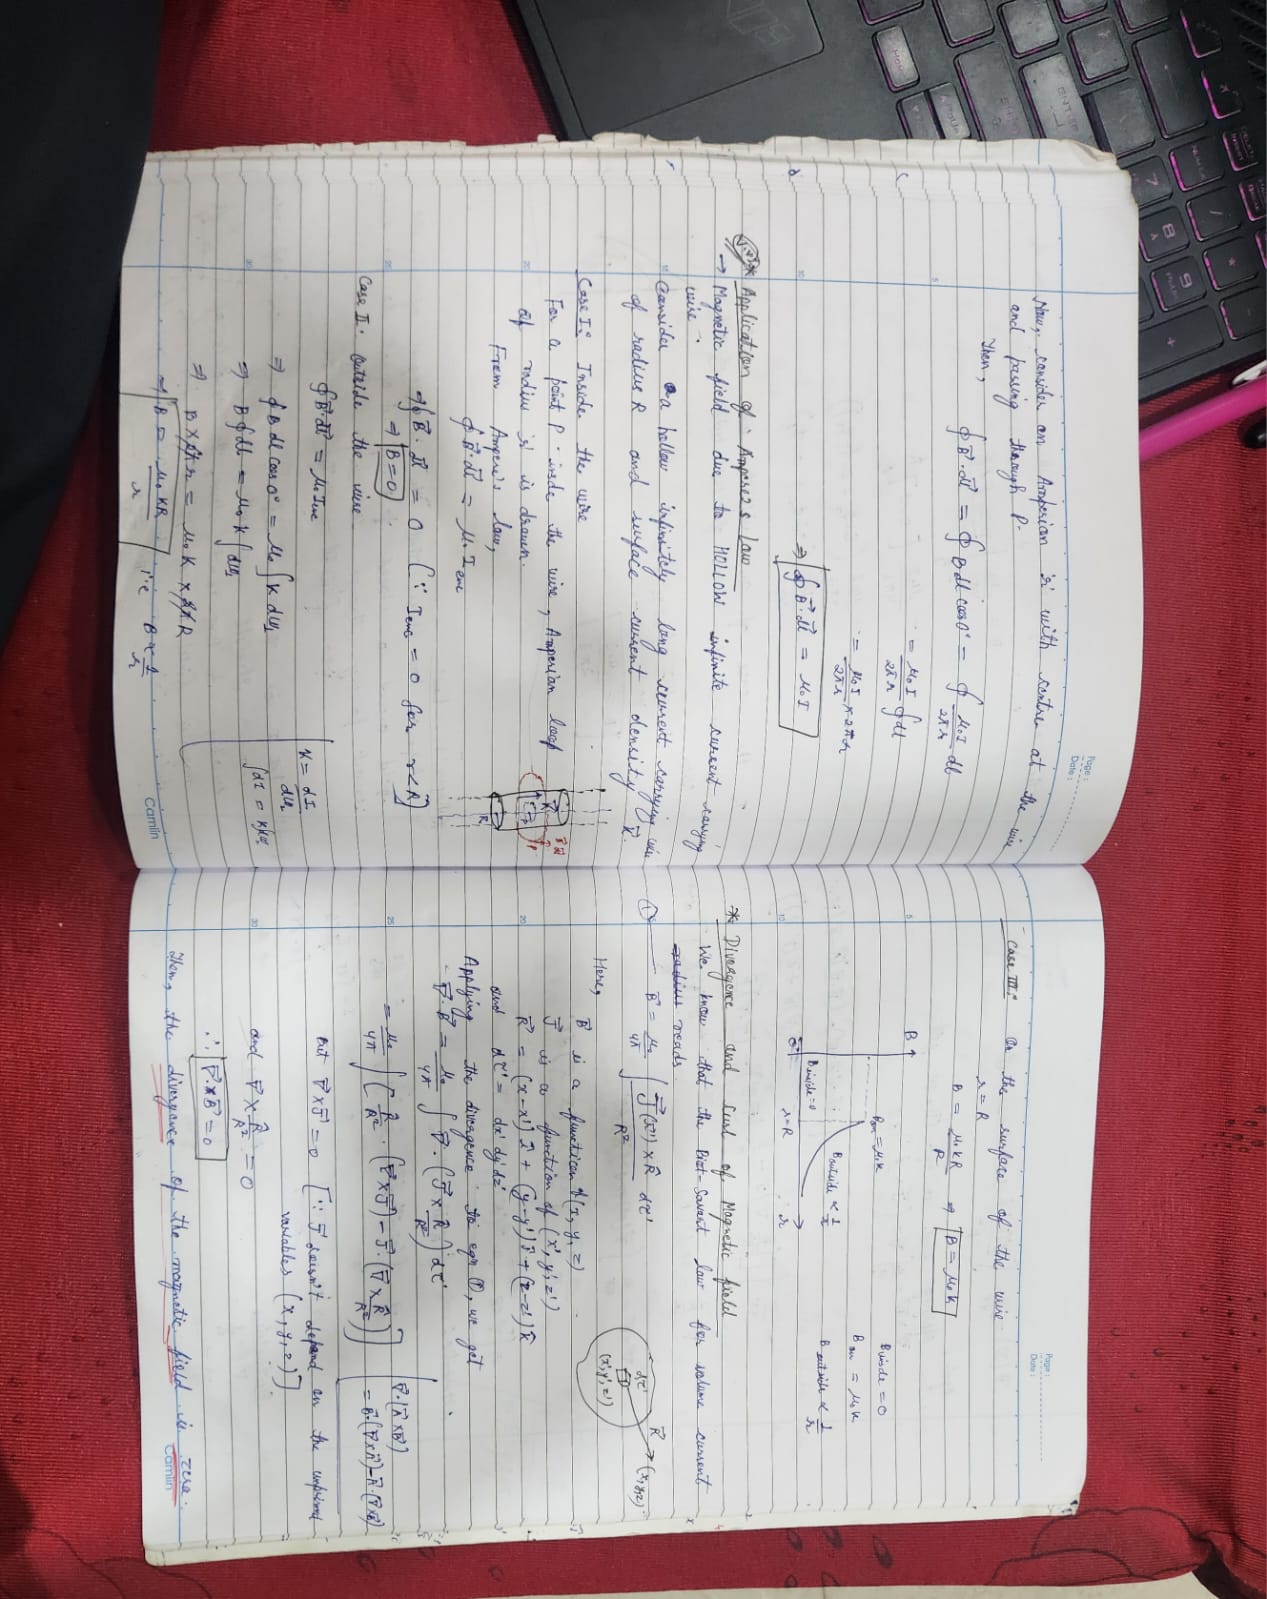 Page:
Date:
Now, consider an Amperian 'r' with centre at the wire
and passing through P.
Then,
∮ B⃗·dl⃗ = ∮ B dl cos0° = ∮ μ₀I/2πr dl
= μ₀I/2πr ∮dl
= μ₀I/2πr × 2πr
⇒ ∮ B⃗·dl⃗ = μ₀I
* Application of Ampere's law
→ Magnetic field due to HOLLOW infinite current carrying
wire.
Consider a hollow infinitely long current carrying wire
of radius R and surface current density K⃗.
Case I: Inside the wire
For a point P inside the wire, Amperian loop
of radius 'r' is drawn.
From Ampere's law,
∮ B⃗·dl⃗ = μ₀ I enc
⇒ ∮ B⃗·dl⃗ = 0 [∵ Ienc = 0 for r<R]
⇒ B=0
Case II: outside the wire
∮ B⃗·dl⃗ = μ₀ Ienc
⇒ ∮ B dl cos0° = μ₀ ∫ K dl⊥
⇒ B ∮ dl = μ₀ K ∫ dl⊥
⇒ B × 2πr = μ₀ K × 2πR
⇒ B = μ₀KR/r i.e B ∝ 1/r
K = dI/dl⊥
Camlin
Page:
Date:
Case III: On the surface of the wire
r = R
B = μ₀KR/R ⇒ B = μ₀K
B
Binside=0
Bon = μ₀K
Boutside ∝ 1/r
r=R
r
Binside = 0
Bon = μ₀K
Boutside ∝ 1/r
* Divergence and curl of Magnetic field
We know that the Biot-Savart law for volume current
reads
① B⃗ = μ₀/4π ∫ J⃗(x⃗') × R̂/R² dτ'
Here,
B⃗ is a function of (x, y, z)
J⃗ is a function of (x', y', z')
R⃗ = (x-x')î + (y-y')ĵ + (z-z')k̂
and dτ' = dx'dy'dz'
dτ'
(x',y',z')
R⃗
(x,y,z)
Applying the divergence to eqn ①, we get
∇⃗·B⃗ = μ₀/4π ∫ ∇⃗·(J⃗ × R̂/R²) dτ'
= μ₀/4π ∫ [R̂/R² · (∇⃗×J⃗) − J⃗·(∇⃗ × R̂/R²)]
∇⃗·(A⃗×B⃗)
= B⃗·(∇×A⃗) − A⃗·(∇×B⃗)
But ∇⃗×J⃗ = 0 [∵ J⃗ doesn't depend on the unprimed
variables (x, y, z)]
and ∇⃗ × R̂/R² = 0
∴ ∇⃗·B⃗ = 0
Then, the divergence of the magnetic field is zero.
Camlin